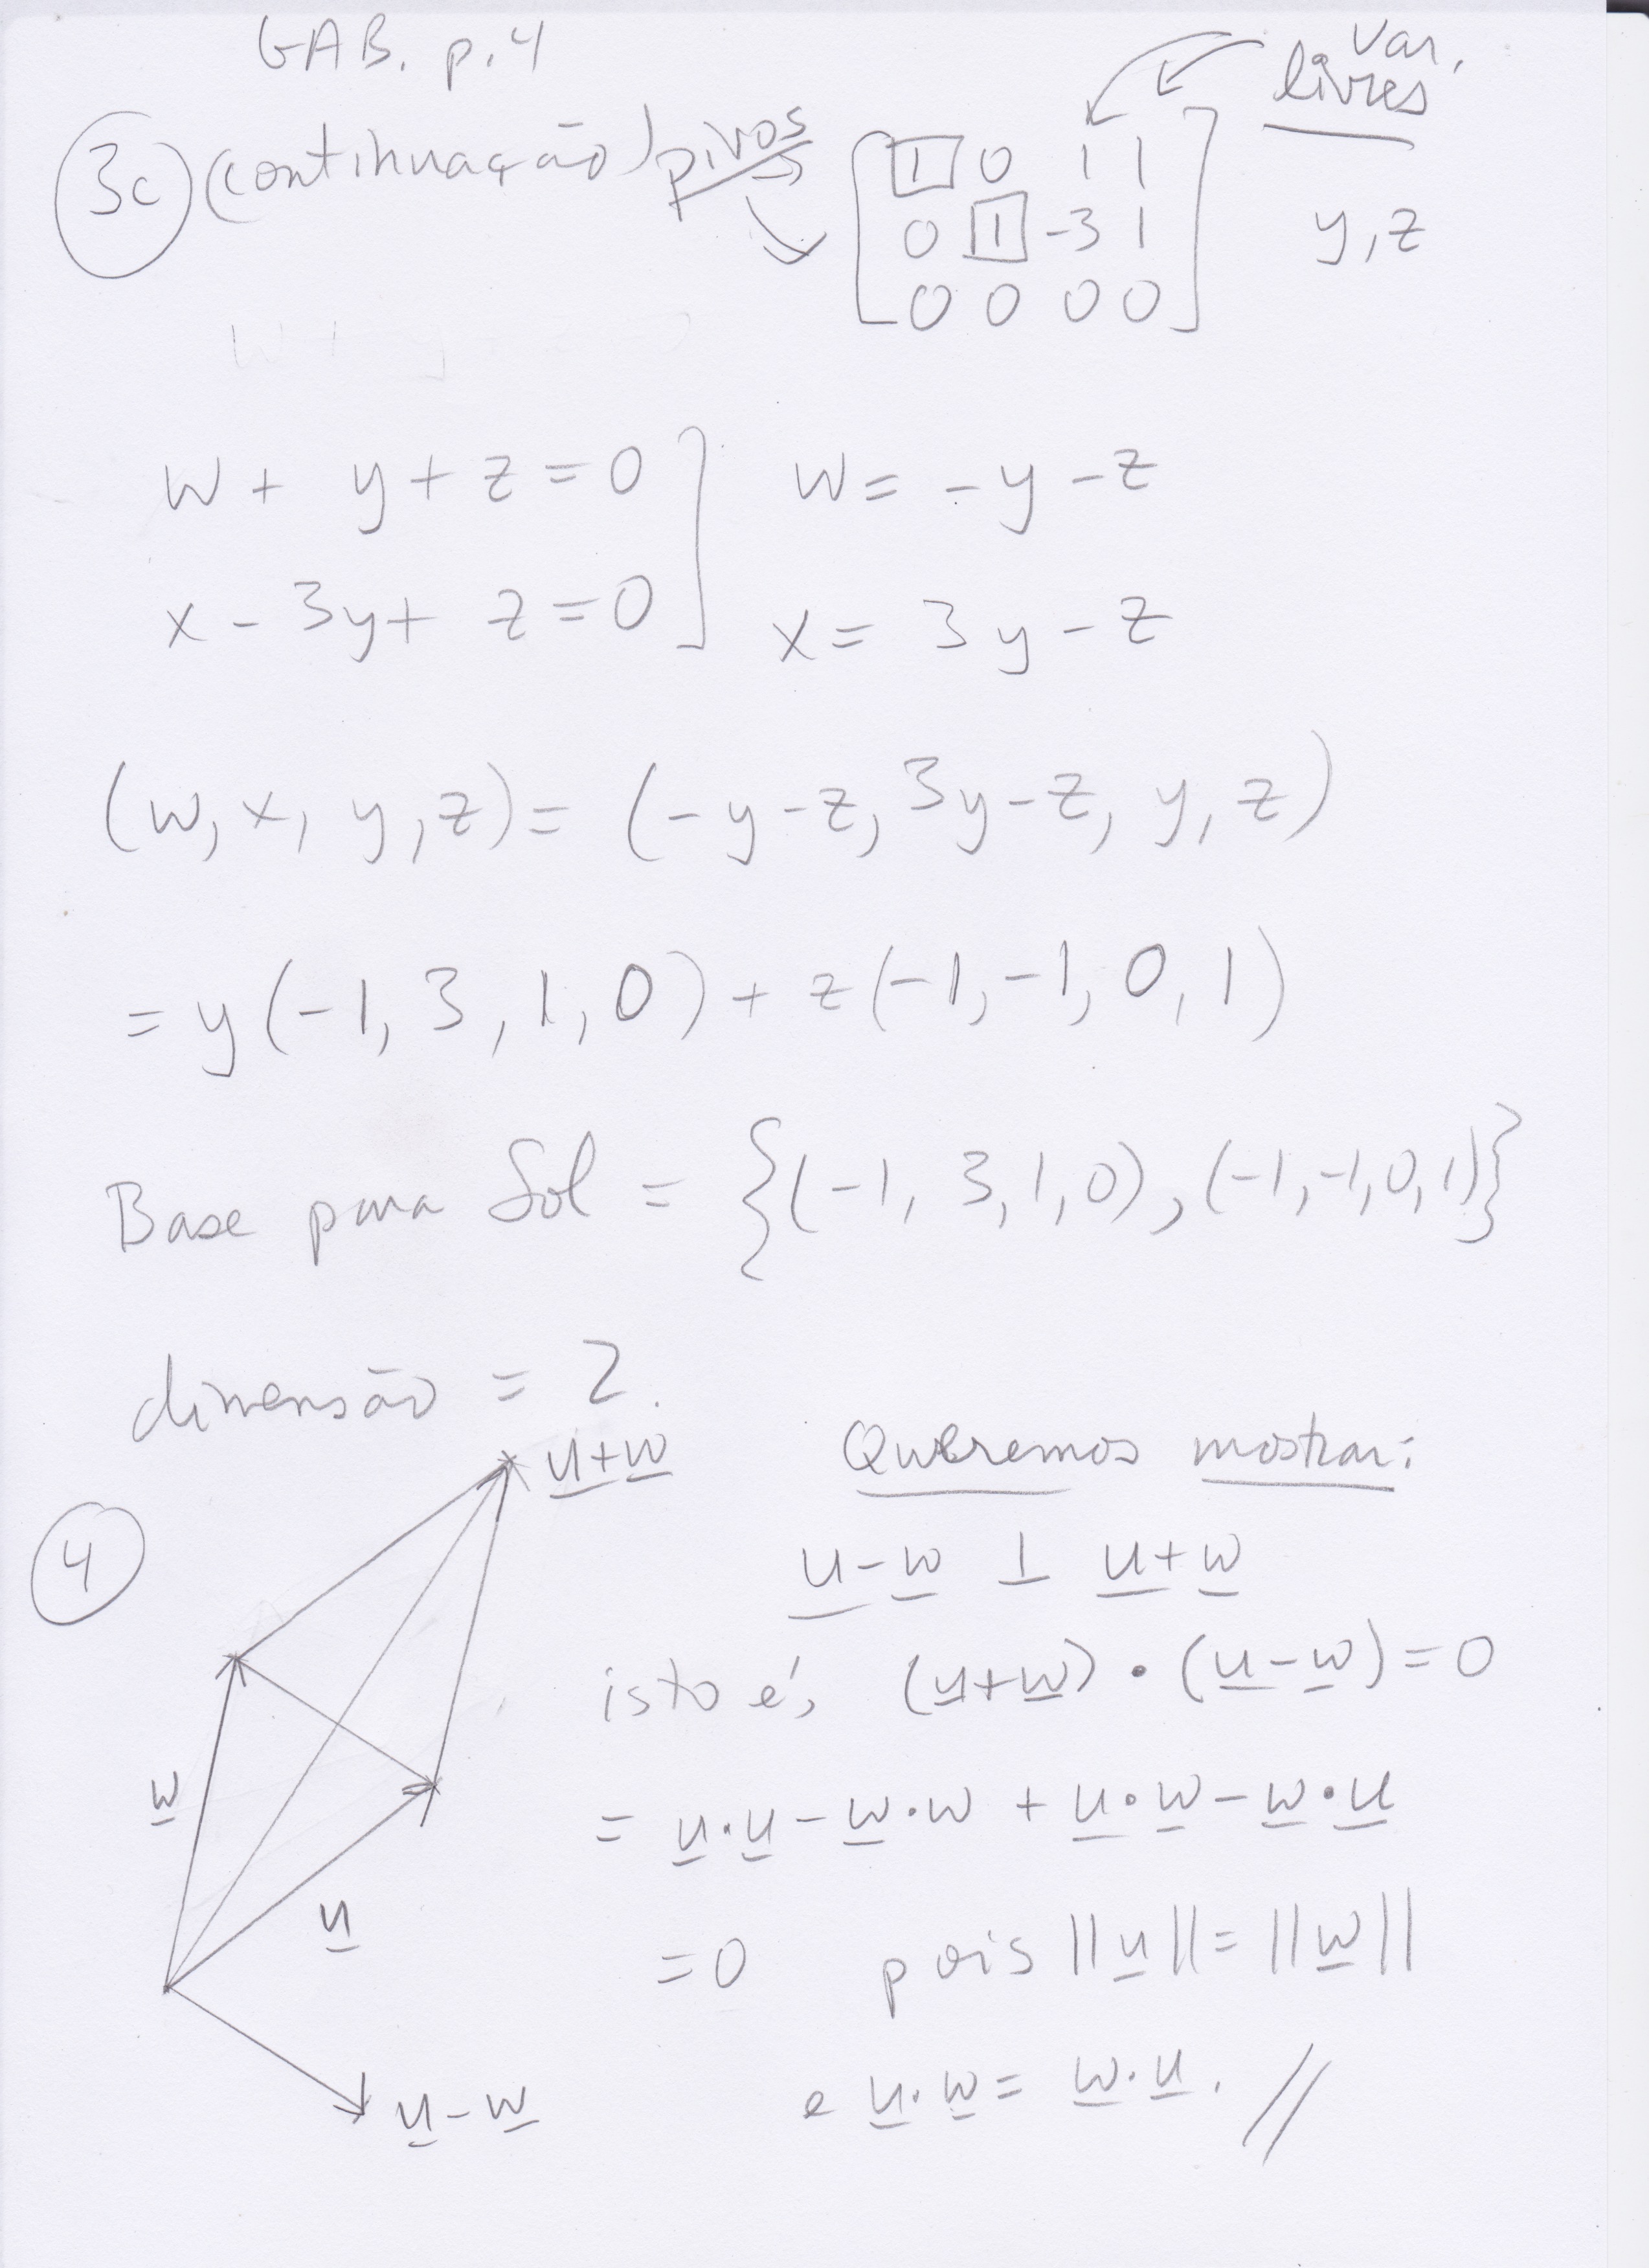 GAB. p.4
var. livres
3c) (continuação) pivos
[1 0 1 1]
[0 1 -3 1] y,z
[0 0 0 0]
w + y + z = 0 ] w = -y - z
x - 3y + z = 0 ] x = 3y - z
(w, x, y, z) = (-y-z, 3y-z, y, z)
= y(-1, 3, 1, 0) + z(-1, -1, 0, 1)
Base para Sol = {(-1, 3, 1, 0), (-1, -1, 0, 1)}
dimensão = 2.
4
u+w
w
u
u-w
Queremos mostrar:
u-w ⊥ u+w
isto é, (u+w)·(u-w)=0
= u·u - w·w + u·w - w·u
=0 pois ||u|| = ||w||
e u·w = w·u. //